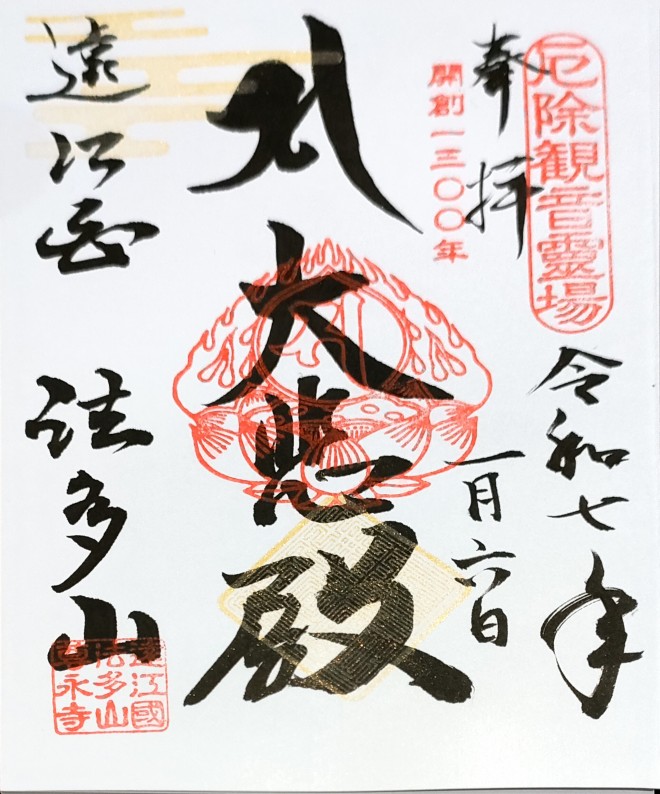 厄除観音霊場
奉拝
開創一三〇〇年
令和七年
一月六日
大悲殿
遠江国
法多山
遠江國
法多山
尊永寺